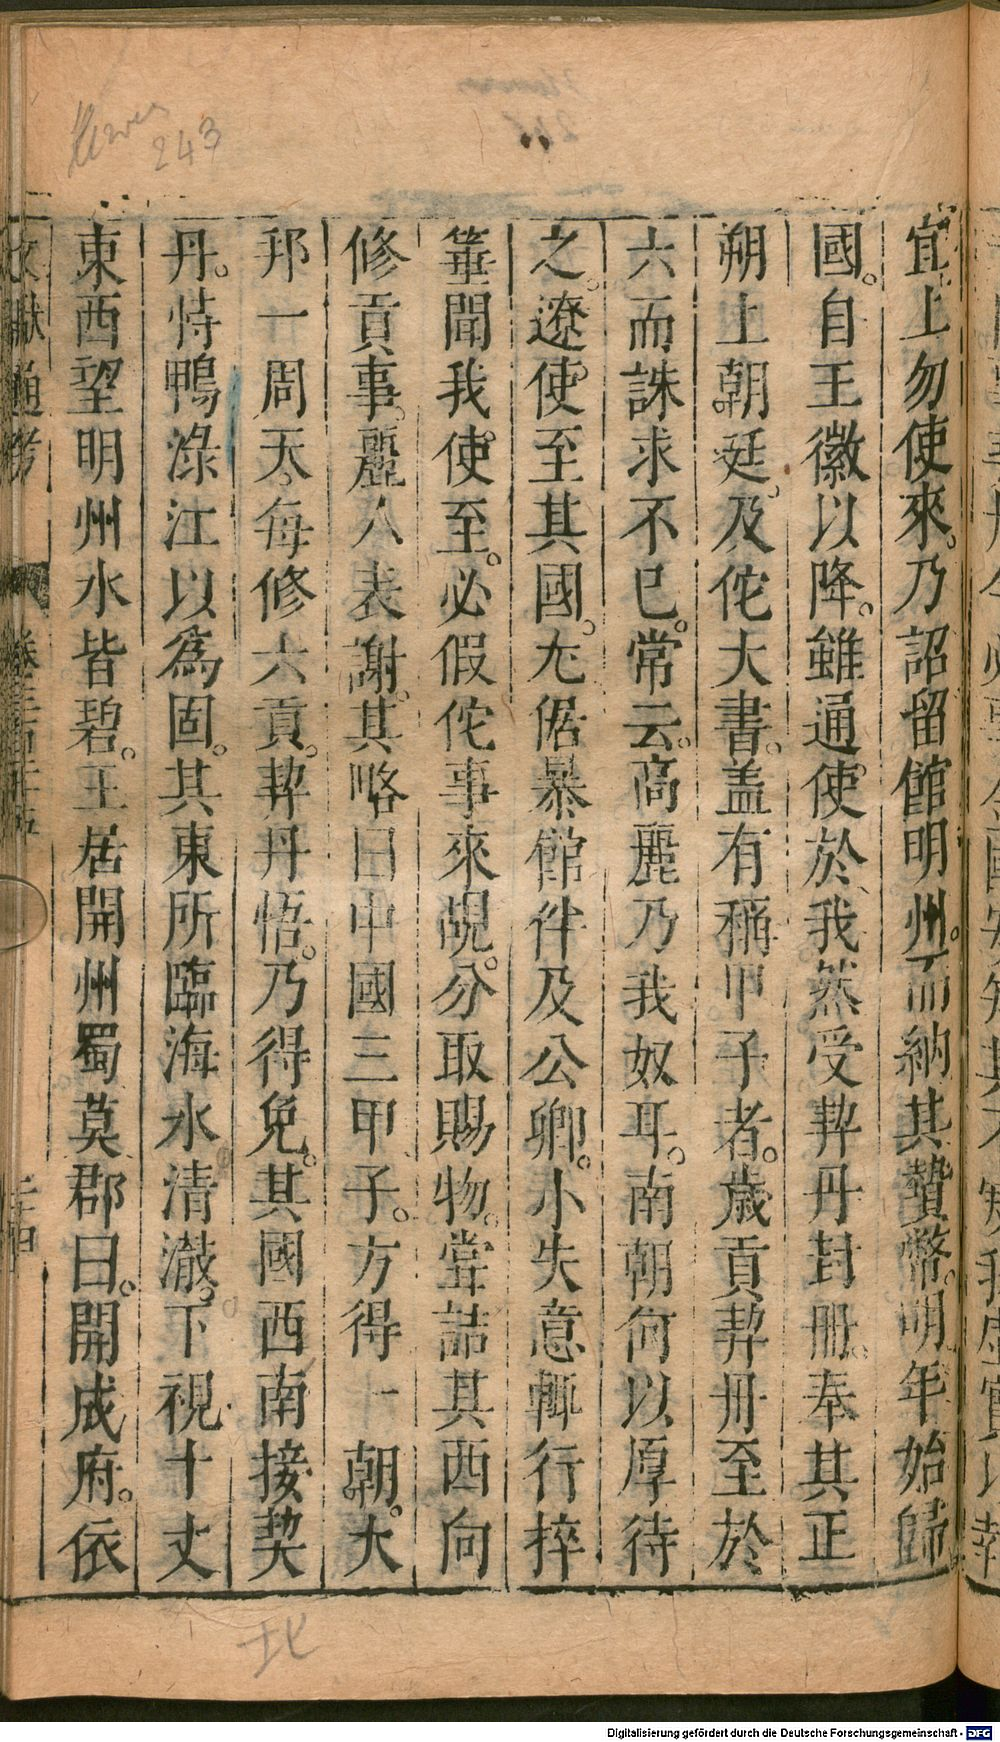 宜上勿使來。乃詔留館明州。而納其贄幣。明年始歸
國。自王徽以降。雖通使於我。然受契丹封册。奉其正
朔。上朝廷。及佗大書。蓋有稱甲子者。歲貢契丹至於
六。而誅求不已。常云。高麗乃我奴耳。南朝何以厚待
之。遼使至其國。尤倨暴。館伴及公卿。小失意輒行捽
箠。聞我使至。必假佗事來覘。分取賜物。嘗詰其西向
修貢事。麗人表謝。其略曰。中國三甲子。方得一朝。大
邦一周天。每修六貢。契丹悟。乃得免。其國西南接契
丹。恃鴨淥江以為固。其東所臨海水清澈。下視十丈
東西望明州水皆碧。王居開州蜀莫郡曰。開成府。依
文獻通考
二十四
243
北
Digitalisierung gefördert durch die Deutsche Forschungsgemeinschaft - DFG